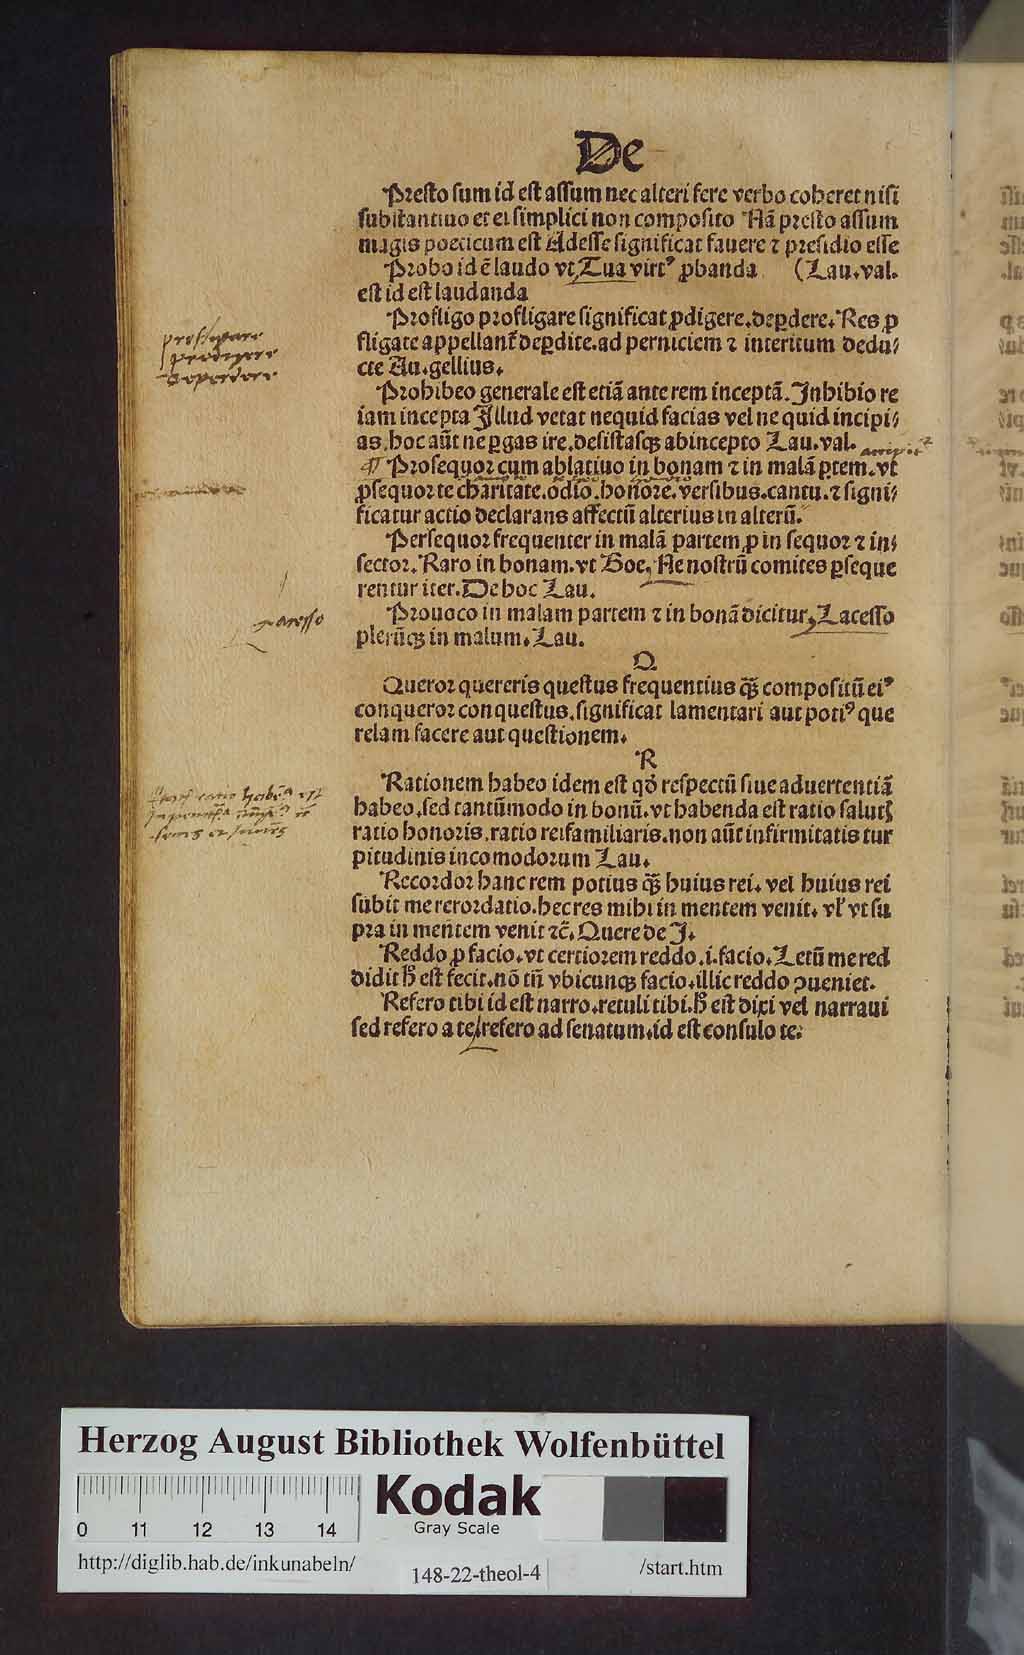 De
Presto sum id est assum nec alteri fere verbo coheret nisi
substantiuo et ei simplici non composito Nã presto assum
magis poeticum est Adesse significat fauere ⁊ presidio esse
Probo id ē laudo vt, Tua virtꝰ ꝓbanda (Lau.val.
est id est laudanda
Profligo profligare significat ꝓdigere.deꝑdere. Res ꝓ
fligate appellant᷑ deꝑdite.ad perniciem ⁊ interitum dedu⸗
cte Au.gellius.
Prohibeo generale est etiã ante rem inceptã. Inhibio re
iam incepta Illud vetat nequid facias vel ne quid incipi⸗
as.hoc aūt ne ꝑgas ire.desistasqꝫ ab incepto Lau.val.
¶ Prosequor cum ablatiuo in bonam ⁊ in malã ꝑtem.vt
ꝓsequor te charitate.odio.honore.versibus.cantu.⁊ signi⸗
ficatur actio declarans affectū alterius in alterū.
Persequor frequenter in malã partem ꝓ insequor ⁊ in⸗
sector. Raro in bonam.vt Boe. Ne nostrū comites ꝑseque
rentur iter. De hoc Lau.
Prouoco in malam partem ⁊ in bonã dicitur, Lacesso
plerūqꝫ in malum. Lau.
Q
Queror quereris questus frequentius q̄ꝫ compositū eiꝰ
conqueror conquestus.significat lamentari aut potiꝰ que
relam facere aut questionem.
R
Rationem habeo idem est qđ respectū siue aduertentiã
habeo.sed tantūmodo in bonū.vt habenda est ratio salutꝭ
ratio honoris.ratio rei familiaris.non aūt infirmitatis tur
pitudinis incomodorum Lau.
Recordor hanc rem potius q̄ꝫ huius rei. vel huius rei
subit me rerordatio.hec res mihi in mentem venit. vl̕ vt su
pra in mentem venit ⁊c̄. Quere de I.
Reddo ꝓ facio.vt certiorem reddo.i.facio. Letū me red
didit h̄ est fecit.nō tn̄ vbicunqꝫ facio.illic reddo ꝯueniet.
Refero tibi id est narro.retuli tibi.h̄ est dixi vel narraui
sed refero a te/refero ad senatum.id est consulo te.
profligare
prodigere
deperdere
Lacesso
Herzog August Bibliothek Wolfenbüttel
Kodak
Gray Scale
0 11 12 13 14
http://diglib.hab.de/inkunabeln/
148-22-theol-4
/start.htm